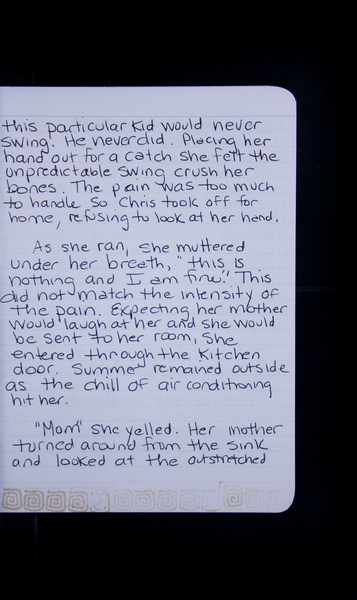 this particular kid would never
swing. He never did. Placing her
hand out for a catch she felt the
unpredictable swing crush her
bones. The pain was too much
to handle so Chris took off for
home, refusing to look at her hand.
As she ran, she muttered
under her breath, "this is
nothing and I am fine." This
did not match the intensity of
the pain. Expecting her mother
would laugh at her and she would
be sent to her room, she
entered through the kitchen
door. Summer remained outside
as the chill of air conditioning
hit her.
"Mom" she yelled. Her mother
turned around from the sink
and looked at the outstretched